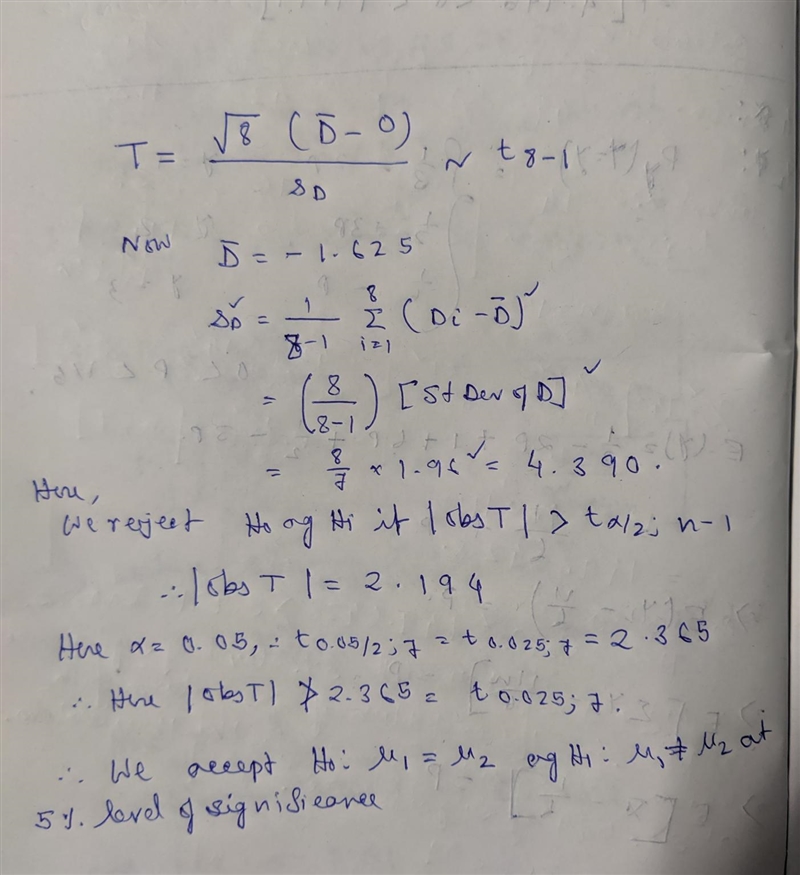 T = √8 (D̄ - 0) / s_D ~ t 8-1
Now D̄ = -1.625
s_D² = 1/(8-1) Σ_{i=1}^{8} (Di - D̄)²
= (8/(8-1)) [St Dev of D]²
= 8/7 * 1.96² = 4.390.
Here,
We reject Ho ag Hi if |obs T| > tα/2; n-1
∴ |obs T| = 2.194
Here α = 0.05, ∴ t 0.05/2; 7 = t 0.025; 7 = 2.365
∴ Here |obs T| ≯ 2.365 = t 0.025; 7.
∴ We accept Ho: μ1 = μ2 ag H1: μ1 ≠ μ2 at
5%. level of significance